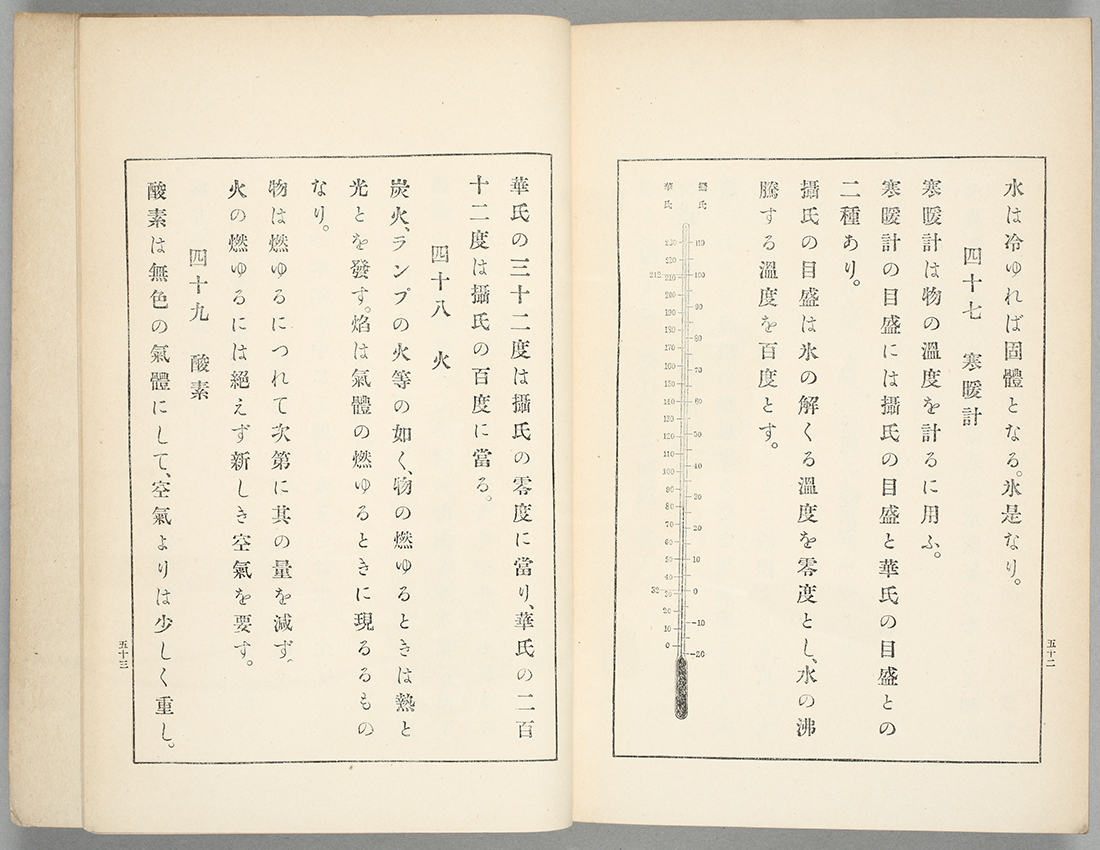 水は冷ゆれば固體となる。氷是なり。
四十七 寒暖計
寒暖計は物の溫度を計るに用ふ。
寒暖計の目盛には攝氏の目盛と華氏の目盛との
二種あり。
攝氏の目盛は氷の解くる溫度を零度とし、水の沸
騰する溫度を百度とす。
攝氏
110
100
90
80
70
60
50
40
30
20
10
0
-10
-20
華氏
230
220
212
210
200
190
180
170
160
150
140
130
120
110
100
90
80
70
60
50
40
32
30
20
10
0
五十二
華氏の三十二度は攝氏の零度に當り、華氏の二百
十二度は攝氏の百度に當る。
四十八 火
炭火、ランプの火等の如く、物の燃ゆるときは熱と
光とを發す。焰は氣體の燃ゆるときに現るるもの
なり。
物は燃ゆるにつれて次第に其の量を減ず。
火の燃ゆるには絕えず新しき空氣を要す。
四十九 酸素
酸素は無色の氣體にして、空氣よりは少しく重し。
五十三